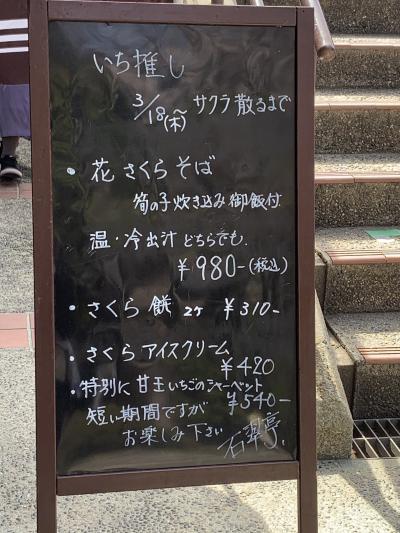 いち推し
3/18(木)~ サクラ散るまで
・花さくらそば
筍の子炊き込み御飯付
温・冷出汁どちらでも.
¥980-(税込)
・さくら餅 2ケ ¥310-
・さくらアイスクリーム
¥420
・特別に甘王いちごのシャーベット
¥540-
短い期間ですが
お楽しみ下さい